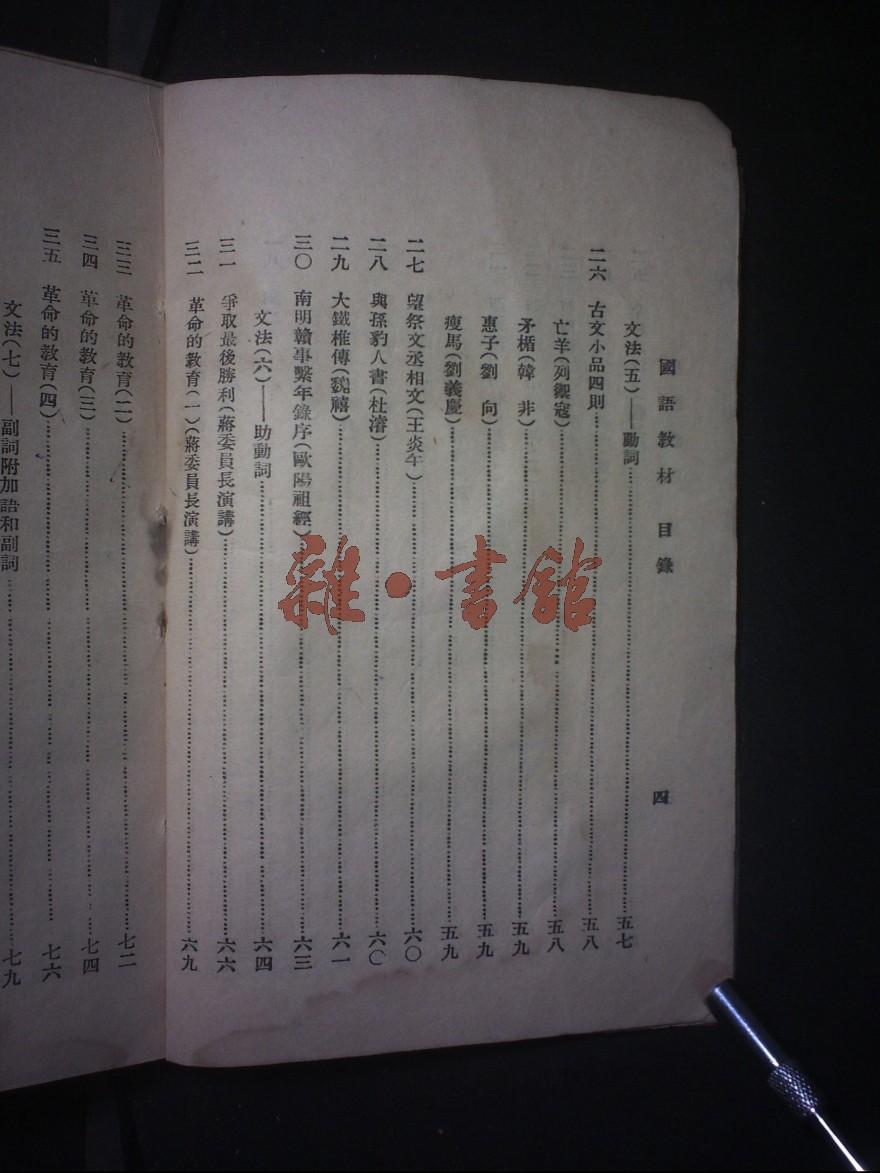 國語教材 目錄 四
文法(五)——動詞……五七
二六 古文小品四則……五八
亡羊(列禦寇)……五八
矛楯(韓 非)……五九
惠子(劉 向)……五九
瘦馬(劉義慶)……五九
二七 望祭文丞相文(王炎午)……六〇
二八 與孫豹人書(杜濬)……六〇
二九 大鐵椎傳(魏禧)……六一
三〇 南明贛事繫年錄序(歐陽祖經)……六三
文法(六)——助動詞……六四
三一 爭取最後勝利(蔣委員長演講)……六六
三二 革命的教育(一)(蔣委員長演講)……六九
三三 革命的教育(二)……七二
三四 革命的教育(三)……七四
三五 革命的教育(四)……七六
文法(七)——副詞附加語和副詞……七九
雜·書館